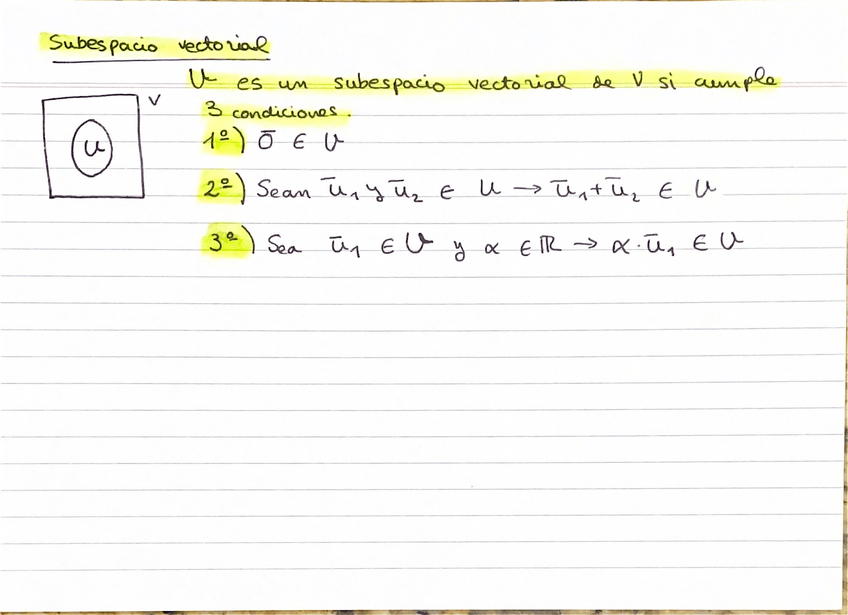 Subespacio vectorial
U es un subespacio vectorial de V si cumple
3 condiciones.
V
U
1º) ō ∈ U
2º) Sean ū₁ y ū₂ ∈ U → ū₁+ū₂ ∈ U
3º) Sea ū₁ ∈ U y α ∈ ℝ → α·ū₁ ∈ U